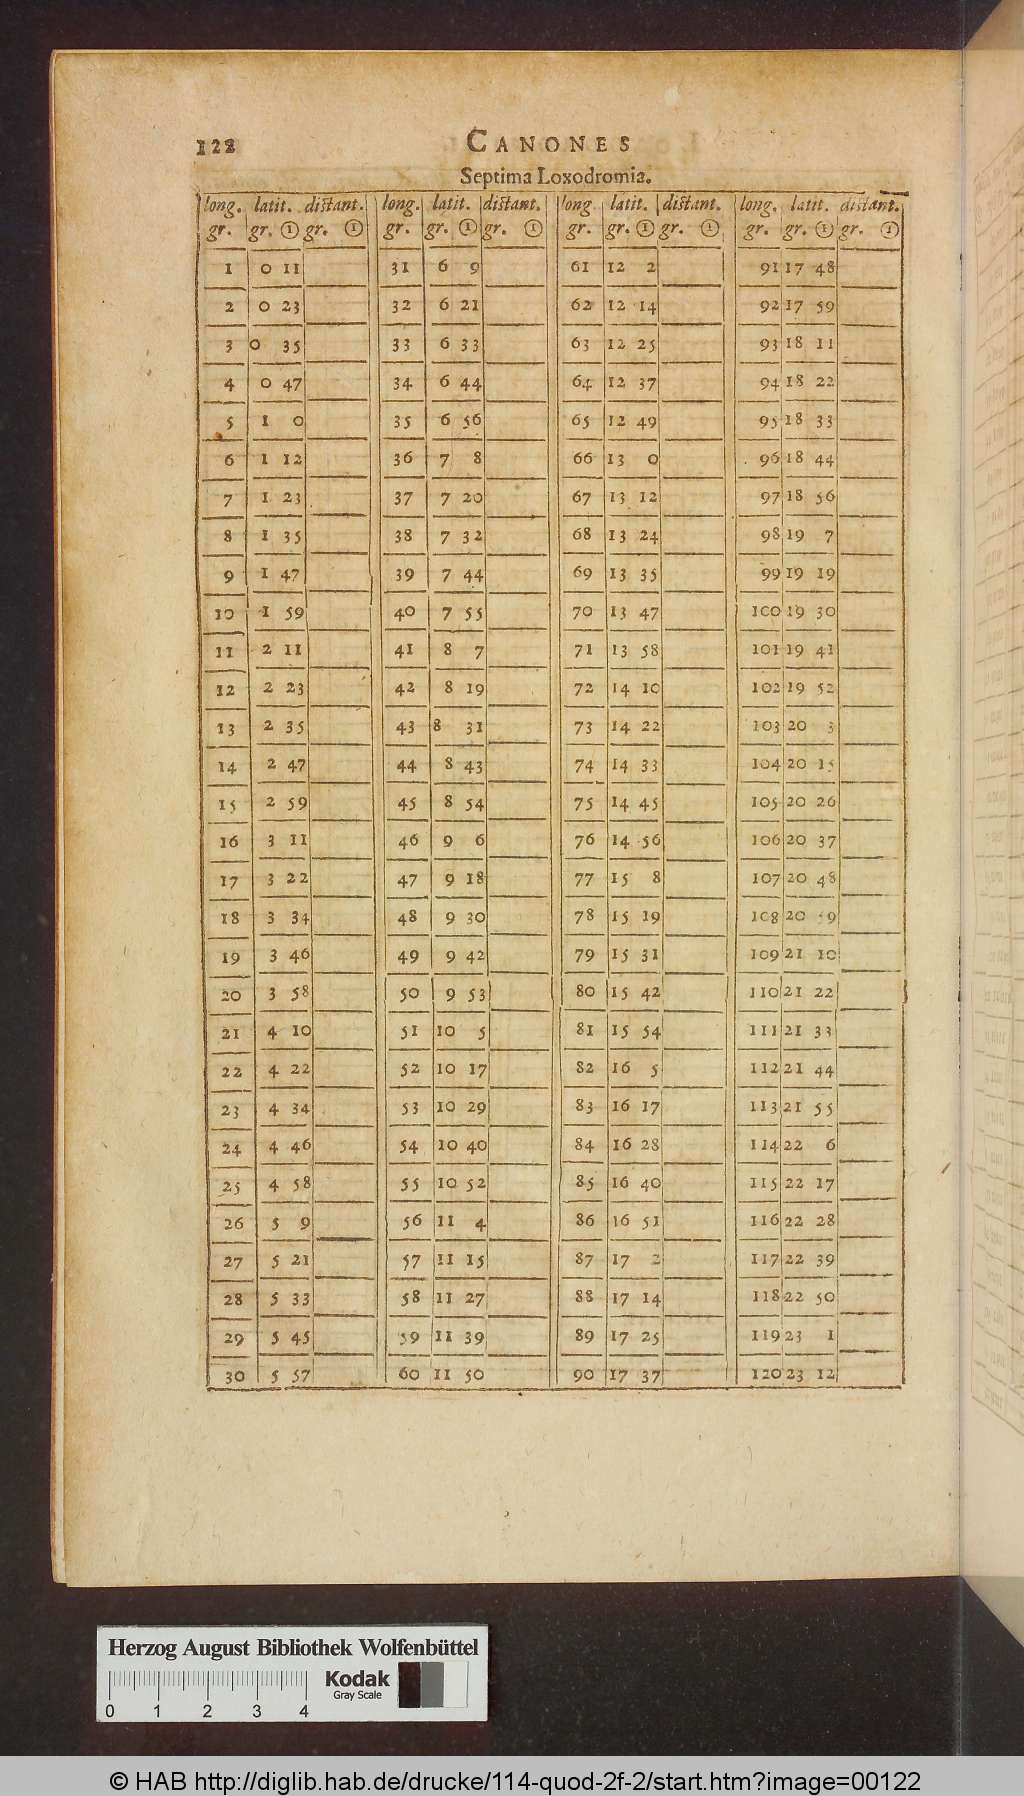 122 CANONES
Septima Loxodromia.
long. latit. distant. long. latit. distant. long. latit. distant. long. latit. distant.
gr. gr. ① gr. ① gr. gr. ① gr. ① gr. gr. ① gr. ① gr. gr. ① gr. ①
1 0 11 31 6 9 61 12 2 91 17 48
2 0 23 32 6 21 62 12 14 92 17 59
3 0 35 33 6 33 63 12 25 93 18 11
4 0 47 34 6 44 64 12 37 94 18 22
5 1 0 35 6 56 65 12 49 95 18 33
6 1 12 36 7 8 66 13 0 96 18 44
7 1 23 37 7 20 67 13 12 97 18 56
8 1 35 38 7 32 68 13 24 98 19 7
9 1 47 39 7 44 69 13 35 99 19 19
10 1 59 40 7 55 70 13 47 100 19 30
11 2 11 41 8 7 71 13 58 101 19 41
12 2 23 42 8 19 72 14 10 102 19 52
13 2 35 43 8 31 73 14 22 103 20 3
14 2 47 44 8 43 74 14 33 104 20 15
15 2 59 45 8 54 75 14 45 105 20 26
16 3 11 46 9 6 76 14 56 106 20 37
17 3 22 47 9 18 77 15 8 107 20 48
18 3 34 48 9 30 78 15 19 108 20 59
19 3 46 49 9 42 79 15 31 109 21 10
20 3 58 50 9 53 80 15 42 110 21 22
21 4 10 51 10 5 81 15 54 111 21 33
22 4 22 52 10 17 82 16 5 112 21 44
23 4 34 53 10 29 83 16 17 113 21 55
24 4 46 54 10 40 84 16 28 114 22 6
25 4 58 55 10 52 85 16 40 115 22 17
26 5 9 56 11 4 86 16 51 116 22 28
27 5 21 57 11 15 87 17 2 117 22 39
28 5 33 58 11 27 88 17 14 118 22 50
29 5 45 59 11 39 89 17 25 119 23 1
30 5 57 60 11 50 90 17 37 120 23 12
Herzog August Bibliothek Wolfenbüttel
Kodak
Gray Scale
0 1 2 3 4
© HAB http://diglib.hab.de/drucke/114-quod-2f-2/start.htm?image=00122